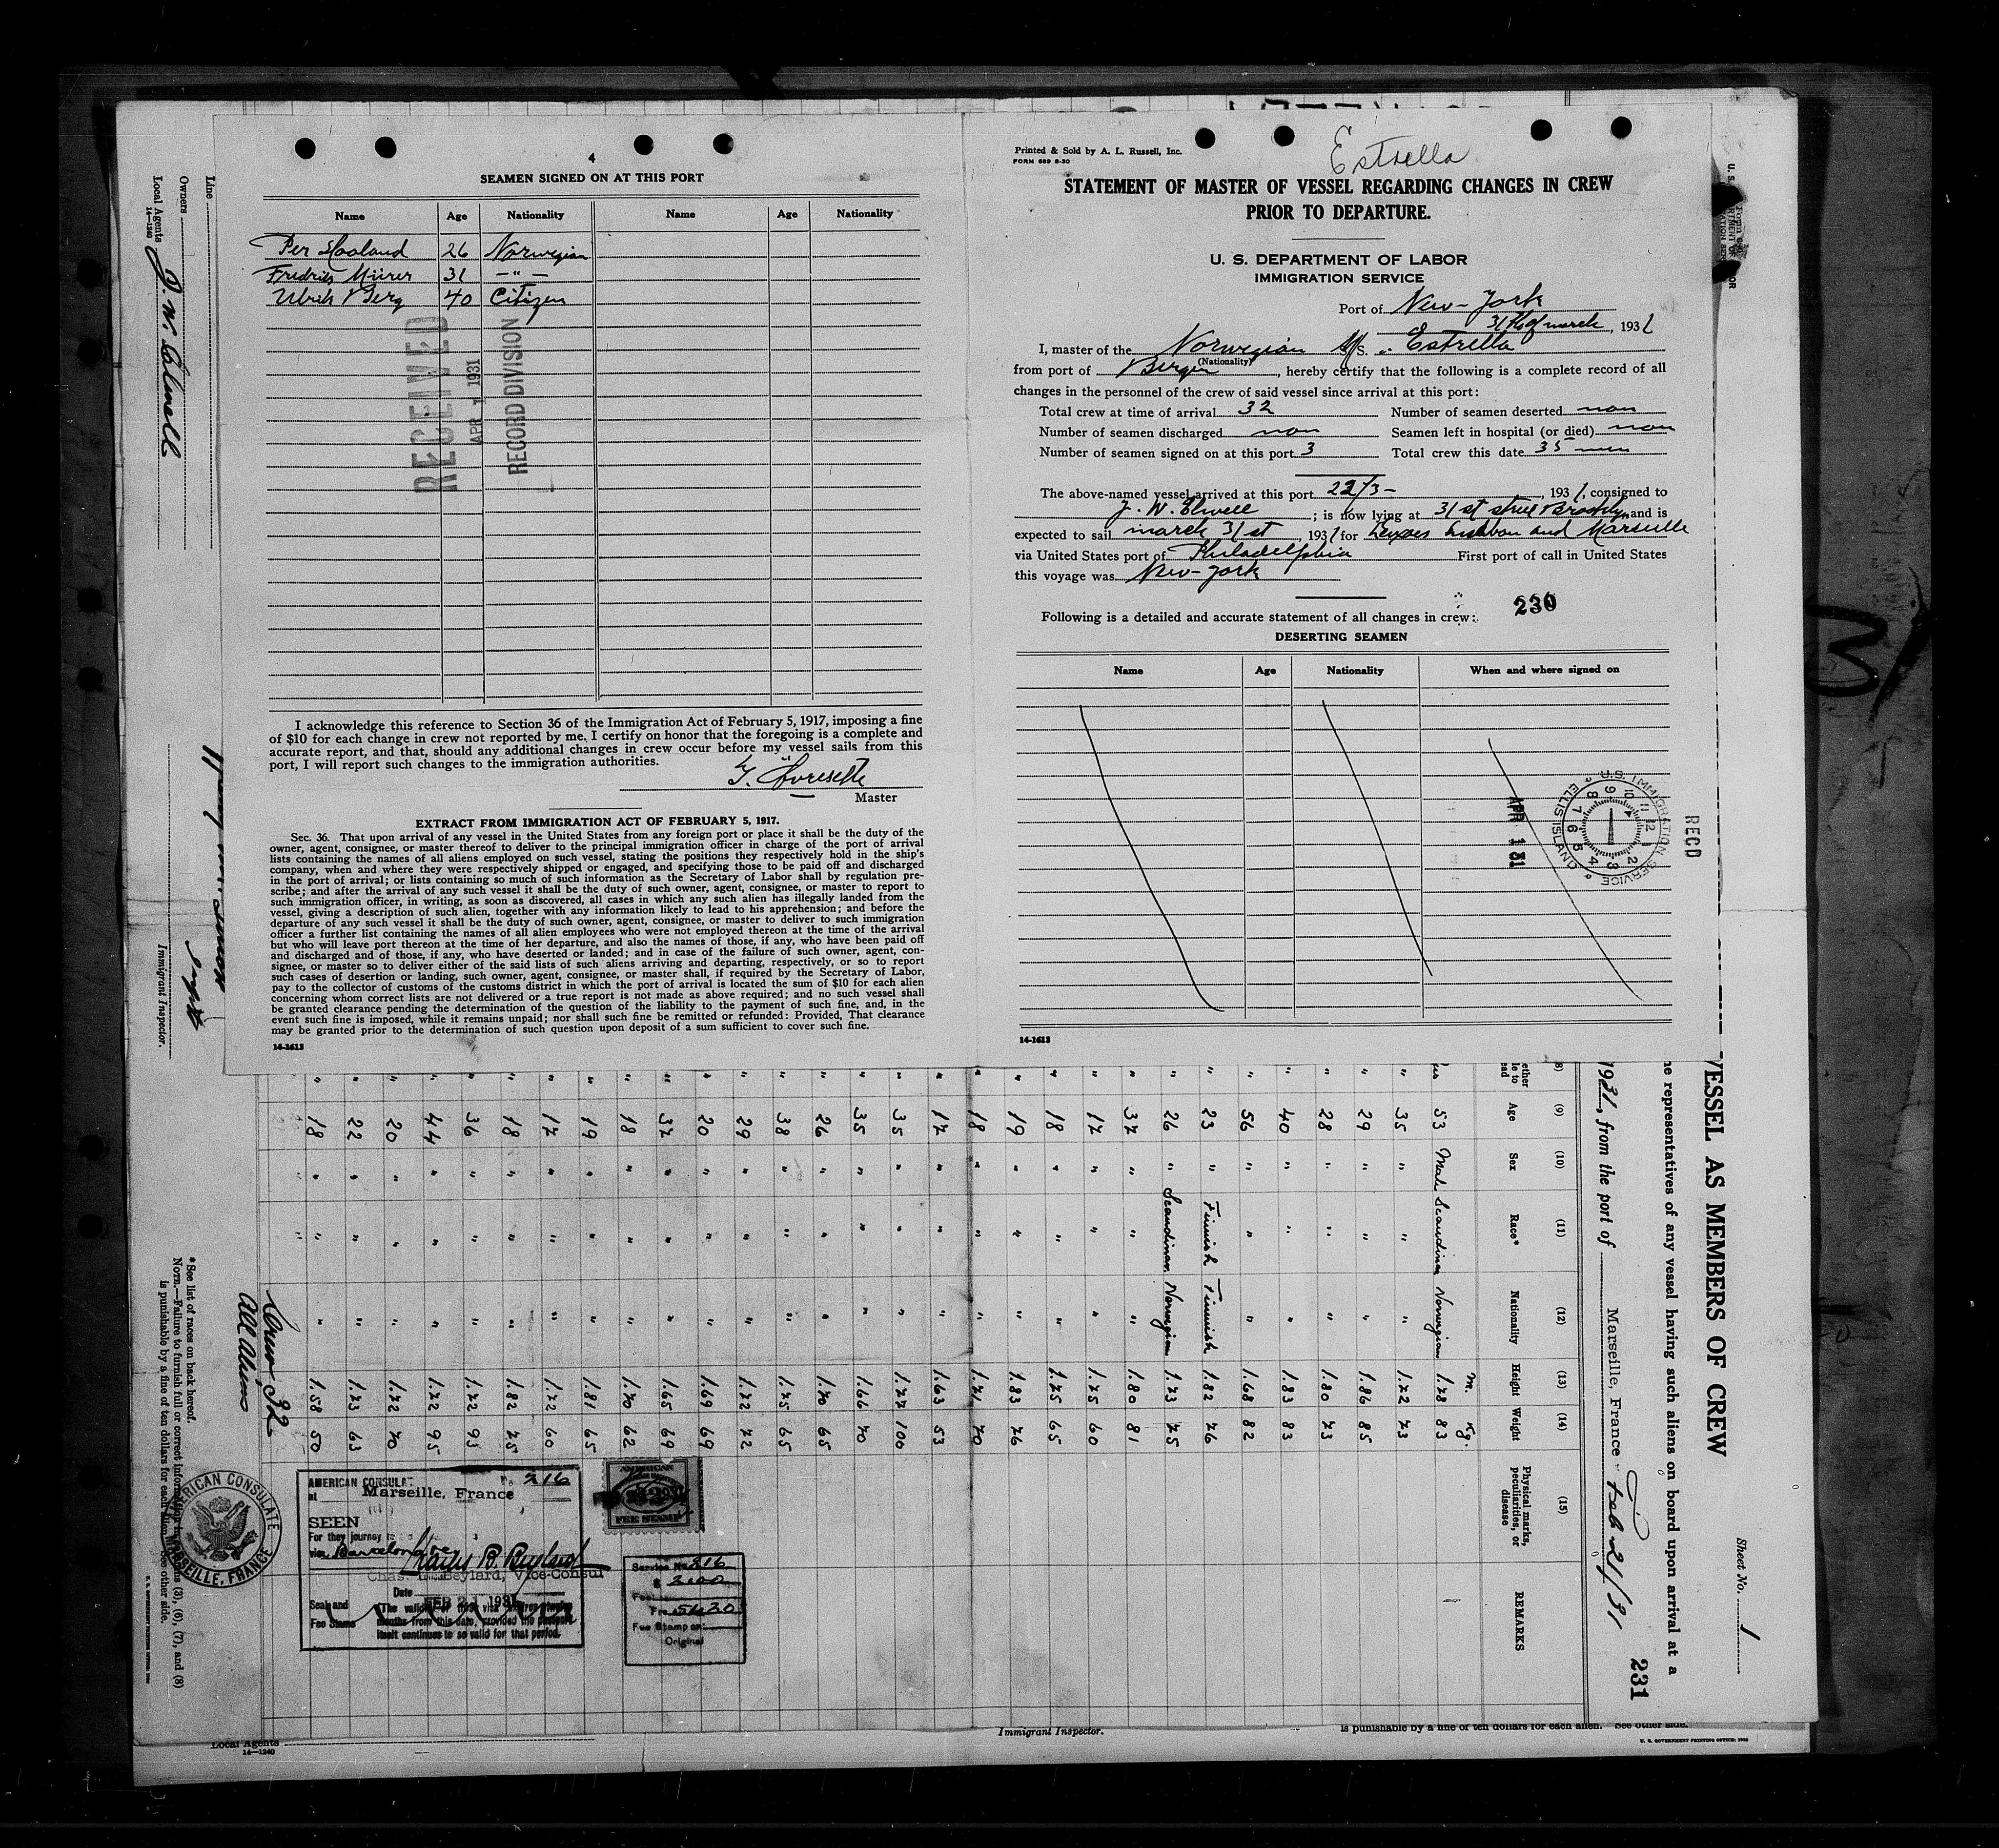 4
SEAMEN SIGNED ON AT THIS PORT
Name Age Nationality Name Age Nationality
Per Hooland 26 Norwegian
Fredrik Mürer 31 — " —
Ulrik Berg 40 Citizen
RECEIVED
APR 1931
RECORD DIVISION
I acknowledge this reference to Section 36 of the Immigration Act of February 5, 1917, imposing a fine
of $10 for each change in crew not reported by me. I certify on honor that the foregoing is a complete and
accurate report, and that, should any additional changes in crew occur before my vessel sails from this
port, I will report such changes to the immigration authorities.
Master
EXTRACT FROM IMMIGRATION ACT OF FEBRUARY 5, 1917.
Sec. 36. That upon arrival of any vessel in the United States from any foreign port or place it shall be the duty of the
owner, agent, consignee, or master thereof to deliver to the principal immigration officer in charge of the port of arrival
lists containing the names of all aliens employed on such vessel, stating the positions they respectively hold in the ship's
company, when and where they were respectively shipped or engaged, and specifying those to be paid off and discharged
in the port of arrival; or lists containing so much of such information as the Secretary of Labor shall by regulation pre-
scribe; and after the arrival of any such vessel it shall be the duty of such owner, agent, consignee, or master to report to
such immigration officer, in writing, as soon as discovered, all cases in which any such alien has illegally landed from the
vessel, giving a description of such alien, together with any information likely to lead to his apprehension; and before the
departure of any such vessel it shall be the duty of such owner, agent, consignee, or master to deliver to such immigration
officer a further list containing the names of all alien employees who were not employed thereon at the time of the arrival
but who will leave port thereon at the time of her departure, and also the names of those, if any, who have been paid off
and discharged and of those, if any, who have deserted or landed; and in case of the failure of such owner, agent, con-
signee, or master so to deliver either of the said lists of such aliens arriving and departing, respectively, or so to report
such cases of desertion or landing, such owner, agent, consignee, or master shall, if required by the Secretary of Labor,
pay to the collector of customs of the customs district in which the port of arrival is located the sum of $10 for each alien
concerning whom correct lists are not delivered or a true report is not made as above required; and no such vessel shall
be granted clearance pending the determination of the question of the liability to the payment of such fine, and, in the
event such fine is imposed, while it remains unpaid; nor shall such fine be remitted or refunded: Provided, That clearance
may be granted prior to the determination of such question upon deposit of a sum sufficient to cover such fine.
14-1613
Printed & Sold by A. L. Russell, Inc.
FORM 689 6-30
Estrella
STATEMENT OF MASTER OF VESSEL REGARDING CHANGES IN CREW
PRIOR TO DEPARTURE.
U. S. DEPARTMENT OF LABOR
IMMIGRATION SERVICE
Port of New-York
31th of march, 1931
I, master of the Norwegian M/S. „ Estrella
(Nationality)
from port of Bergen, hereby certify that the following is a complete record of all
changes in the personnel of the crew of said vessel since arrival at this port:
Total crew at time of arrival 32 Number of seamen deserted non
Number of seamen discharged non Seamen left in hospital (or died) non
Number of seamen signed on at this port 3 Total crew this date 35 men
The above-named vessel arrived at this port 22/3-, 1931, consigned to
J. W. Elwell; is now lying at 31st street Brooklyn and is
expected to sail march 31st, 1931 for Leixoes Lisabon and Marseille
via United States port of Philadelphia First port of call in United States
this voyage was New-York
230
Following is a detailed and accurate statement of all changes in crew:
DESERTING SEAMEN
Name Age Nationality When and where signed on
APR 1 31
U.S. IMMIGRATION SERVICE ELLIS ISLAND
RECD
14-1613
VESSEL AS MEMBERS OF CREW
Sheet No. 1
he representatives of any vessel having such aliens on board upon arrival at a
1931, from the port of Marseille, France Feb 21/31
231
(9) (10) (11) (12) (13) (14) (15)
Age Sex Race* Nationality Height Weight Physical marks, peculiarities, or disease REMARKS
m. Kg.
53 Male Scandinav Norwegian 1.78 83
35 " " " 1.72 73
29 " " " 1.86 85
28 " " " 1.80 73
40 " " " 1.83 83
56 " " " 1.68 82
23 " Finnish Finnish 1.82 76
26 " Scandinav. Norwegian 1.73 75
32 " " " 1.80 81
17 " " " 1.75 60
18 " " " 1.75 65
19 " " " 1.83 76
18 " " " 1.71 70
17 " " " 1.63 53
35 " " " 1.77 100
35 " " " 1.66 70
26 " " " 1.70 65
38 " " " 1.75 65
29 " " " 1.72 72
20 " " " 1.69 69
32 " " " 1.65 69
18 " " " 1.70 62
19 " " " 1.81 65
17 " " " 1.72 60
18 " " " 1.82 75
36 " " " 1.72 93
44 " " " 1.72 95
20 " " " 1.72 70
22 " " " 1.73 63
18 " " " 1.58 50
Crew 32
All Aliens
Line
Owners
Local Agents J. W. Elwell
14—1240
Immigrant Inspector.
*See list of races on back hereof.
NOTE.—Failure to furnish full or correct information (3), (6), (7), and (8)
is punishable by a fine of ten dollars for each alien. See other side.
AMERICAN CONSULATE
MARSEILLE, FRANCE
AMERICAN CONSULAT 216
at Marseille, France
SEEN
For they journey to
via Barcelona
Chas. Beylard, Vice-Consul
Date FEB 21 1931
Seal and
Fee Stamp
months from this date, provided the passport
itself continues to be valid for that period.
AMERICAN
FEE STAMP
Service No. 216
$ 2.00
Fee
Frs 51.20
Fee Stamp on
Original
Local Agents
14—1240
Immigrant Inspector.
is punishable by a fine of ten dollars for each alien. See other side.
U. S. GOVERNMENT PRINTING OFFICE: 1930
31